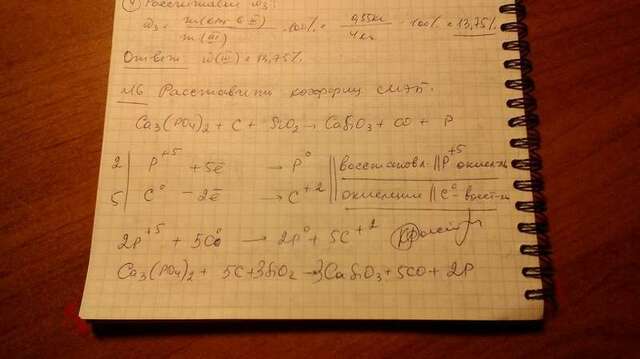 4) Рассчитаем ω₃:
ω₃ = m(в-ва в III) / m(III) · 100% = 0,55кг / 4кг · 100% = 13,75%
Ответ: ω(III) = 13,75%
№6 Расставить коэффиц
Ca₃(PO₄)₂ + C + SiO₂ → CaSiO₃ + CO + P
2 | P⁺⁵ + 5ē → P⁰ || восстановл. || P⁺⁵ окисл-ль
5 | C⁰ - 2ē → C⁺² || окисления || C⁰ - восст-ль
2P⁺⁵ + 5C⁰ → 2P⁰ + 5C⁺²
Ca₃(PO₄)₂ + 5C + 3SiO₂ → 3CaSiO₃ + 5CO + 2P